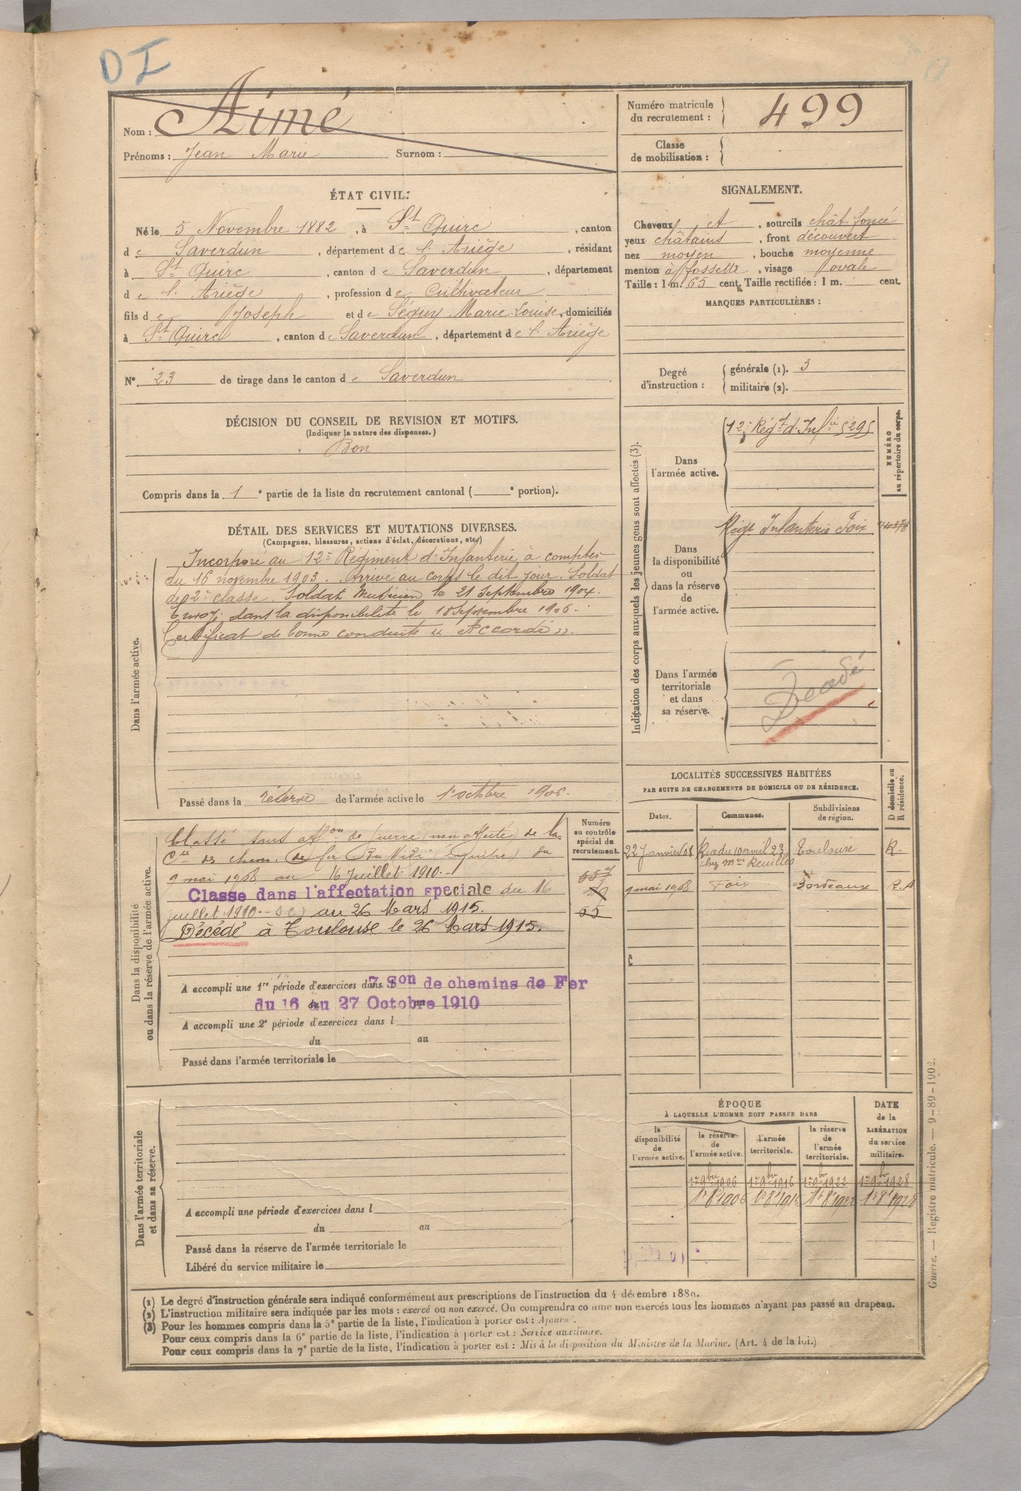 DI
Nom : Aimé
Prénoms : Jean Marie Surnom :
Numéro matricule du recrutement : 499
Classe de mobilisation :
ÉTAT CIVIL.
Né le 5 Novembre 1882, à St Quirc, canton
de Saverdun, département de l'Ariège, résidant
à St Quirc, canton de Saverdun, département
de l'Ariège, profession de Cultivateur
fils de Joseph et de Séguy Marie Louise, domiciliés
à St Quirc, canton de Saverdun, département de l'Ariège
N° 23 de tirage dans le canton de Saverdun
SIGNALEMENT.
Cheveux et, sourcils chât foncé
yeux châtains, front découvert
nez moyen, bouche moyenne
menton à fossette, visage ovale
Taille : 1 m. 63 cent. Taille rectifiée : 1 m. cent.
MARQUES PARTICULIÈRES :
Degré d'instruction : générale (1). 3
militaire (2).
DÉCISION DU CONSEIL DE REVISION ET MOTIFS.
(Indiquer la nature des dispenses.)
Bon
Compris dans la 1e partie de la liste du recrutement cantonal ( e portion).
DÉTAIL DES SERVICES ET MUTATIONS DIVERSES.
(Campagnes, blessures, actions d'éclat, décorations, etc.)
Dans l'armée active.
Incorporé au 12e Régiment d'Infanterie à compter
du 16 novembre 1903. Arrivé au corps le dit jour. Soldat
de 2e classe. Soldat Musicien le 21 Septembre 1904.
Envoyé dans la disponibilité le 18 Septembre 1906.
Certificat de bonne conduite « Accordé ».
Passé dans la réserve de l'armée active le 1 octobre 1906.
Indication des corps auxquels les jeunes gens sont affectés (3).
NUMÉRO au répertoire du corps.
Dans l'armée active.
12e Régt d'Infie
Dans la disponibilité ou dans la réserve de l'armée active.
Régt Infanterie Foix
Dans l'armée territoriale et dans sa réserve.
Décédé
Dans la disponibilité ou dans la réserve de l'armée active.
Numéro au contrôle spécial du recrutement.
Classé dans affon de guerre (non affecté) de la
Cie des chem. de fer du Midi du
9 mai 1908 au 16 juillet 1910.
Classé dans l'affectation spéciale du 16
juillet 1910 au 26 Mars 1915.
Décédé à Toulouse le 26 Mars 1915.
557
55
A accompli une 1re période d'exercices dans 7 Son de chemins de Fer
du 16 au 27 Octobre 1910
A accompli une 2e période d'exercices dans l
du au
Passé dans l'armée territoriale le
LOCALITÉS SUCCESSIVES HABITÉES
PAR SUITE DE CHANGEMENTS DE DOMICILE OU DE RÉSIDENCE.
D domicile ou R résidence.
Dates. Communes. Subdivisions de région.
22 Janvier 08 chez Mme Toulouse R.
9 mai 1908 Foix Bordeaux R.
Dans l'armée territoriale et dans sa réserve.
A accompli une période d'exercices dans l
du au
Passé dans la réserve de l'armée territoriale le
Libéré du service militaire le
ÉPOQUE
À LAQUELLE L'HOMME DOIT PASSER DANS
DATE de la LIBÉRATION du service militaire.
la disponibilité de l'armée active.
la réserve de l'armée active.
l'armée territoriale.
la réserve de l'armée territoriale.
1er 9bre 1906 1er 9bre 1916 1er 9bre 1922 1er 9bre 1928
(1) Le degré d'instruction générale sera indiqué conformément aux prescriptions de l'instruction du 4 décembre 1889.
(2) L'instruction militaire sera indiquée par les mots : exercé ou non exercé. On comprendra comme non exercés tous les hommes n'ayant pas passé au drapeau.
(3) Pour les hommes compris dans la 5e partie de la liste, l'indication à porter est : Ajourné.
Pour ceux compris dans la 6e partie de la liste, l'indication à porter est : Service auxiliaire.
Pour ceux compris dans la 7e partie de la liste, l'indication à porter est : Mis à la disposition du Ministre de la Marine. (Art. 4 de la loi.)
Guerre. — Registre matricule. — 9-89-1902.